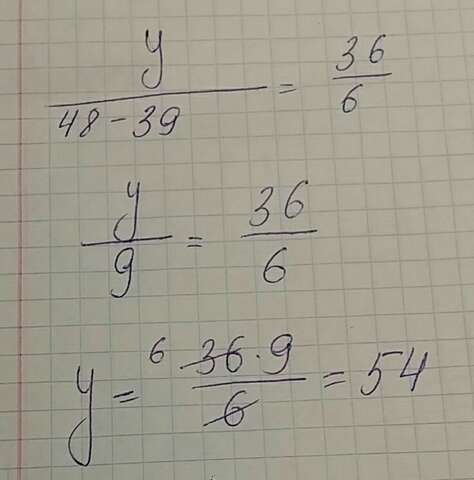 y / 48 - 39 = 36 / 6
y / 9 = 36 / 6
y = 6 36 · 9 / 6 = 54